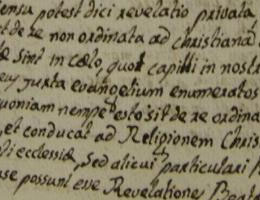 sensu potest dici revelatio privata,
est de re non ordinata ad christianâ
sint in cælo, quot capilli in nostr
juxta evangelium enumeratos
quoniam nempe esto sit de re ordina
et conducat ad Religionem Chris
ecclesiæ, sed alicui particulari
possunt esse Revelationes Beat